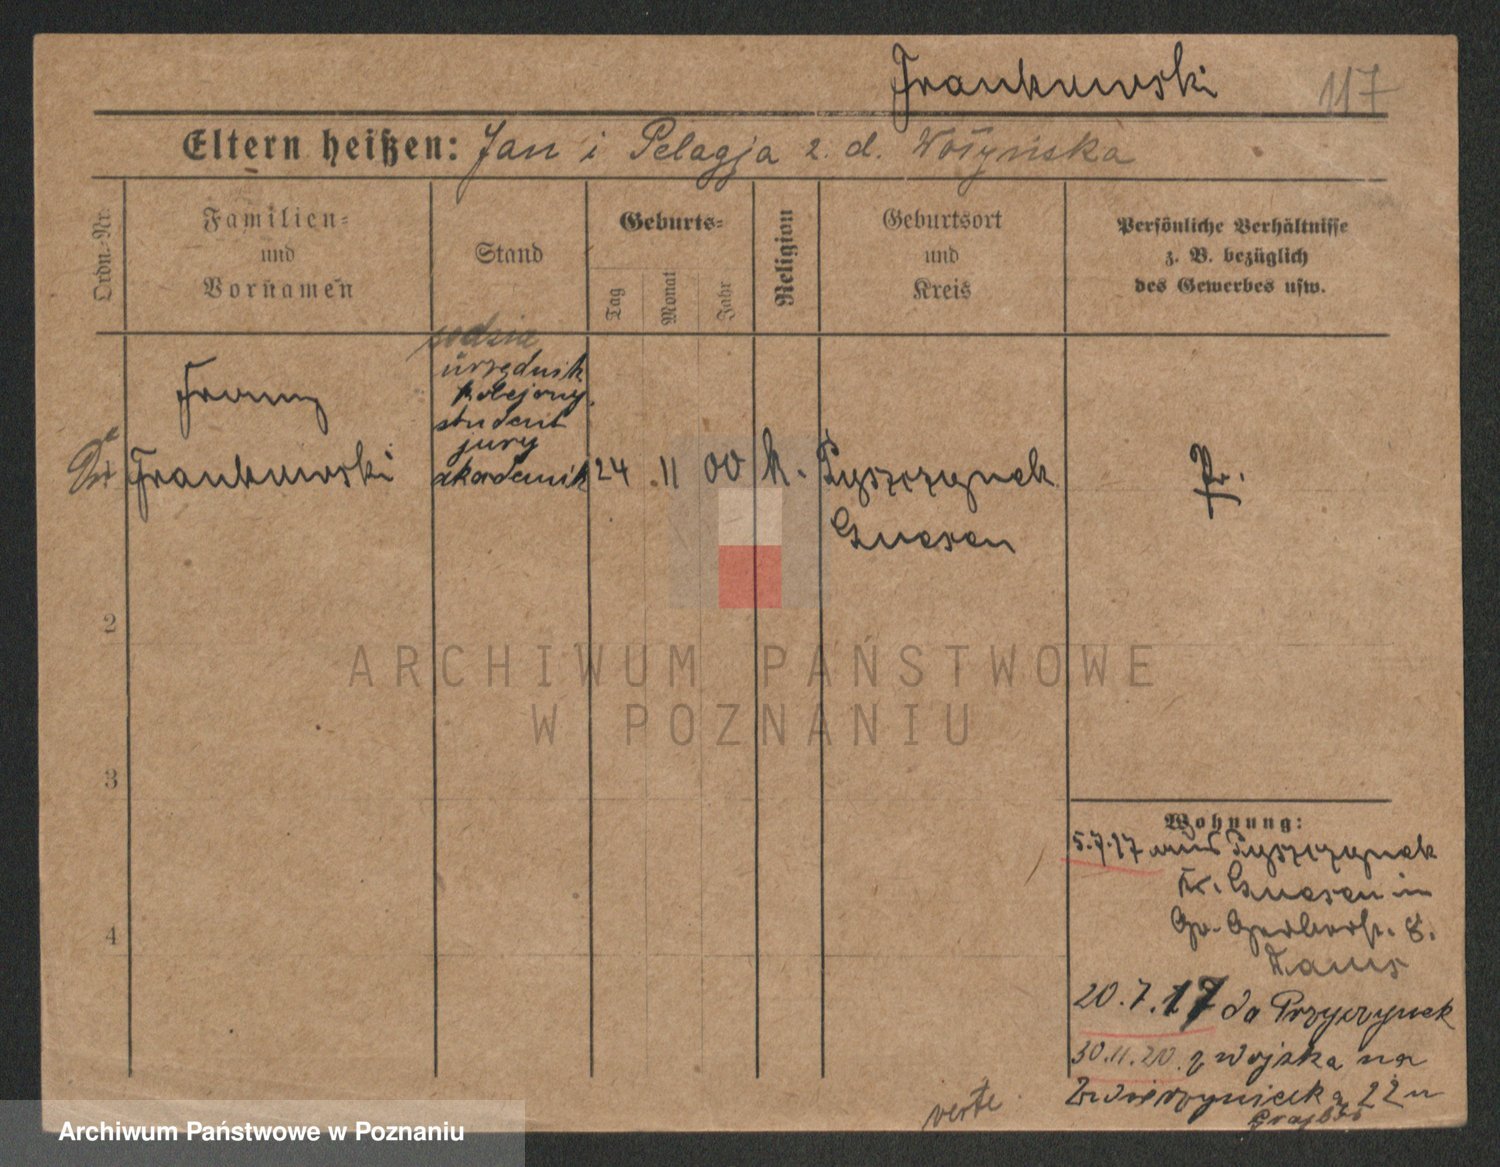 Frankowski
117
Eltern heißen: Jan i Pelagja z. d. Wożyńska
Ordn.-Nr.
Familien-
und
Vornamen
Stand
Geburts-
Tag
Monat
Jahr
Religion
Geburtsort
und
Kreis
Persönliche Verhältnisse
z. B. bezüglich
des Gewerbes usw.
sędzia
urzędnik
kolejowy.
student
jury
akademik
Franz
Frankowski
24 11 00 k. Pyszczynek
Gnesen
Pr.
2
3
4
Wohnung:
5.7.17 aus Pyszczynek
Kr. Gnesen in
Gr. Gerberstr. 8.
20.7.17 do Pyszczynek
30.11.20. z wojska na
Zwierzyniecka 22 u
verte
ARCHIWUM PAŃSTWOWE
W POZNANIU
Archiwum Państwowe w Poznaniu